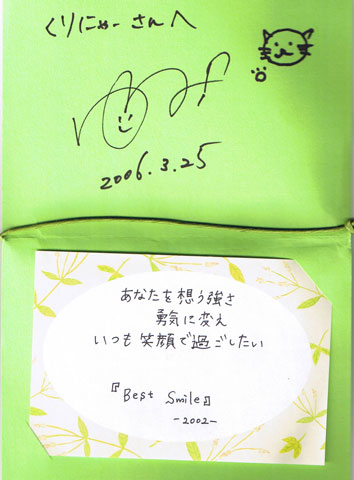 くりにゃーさんへ
2006.3.25
あなたを想う強さ
勇気に変え
いつも笑顔で過ごしたい
『Best Smile』
-2002-